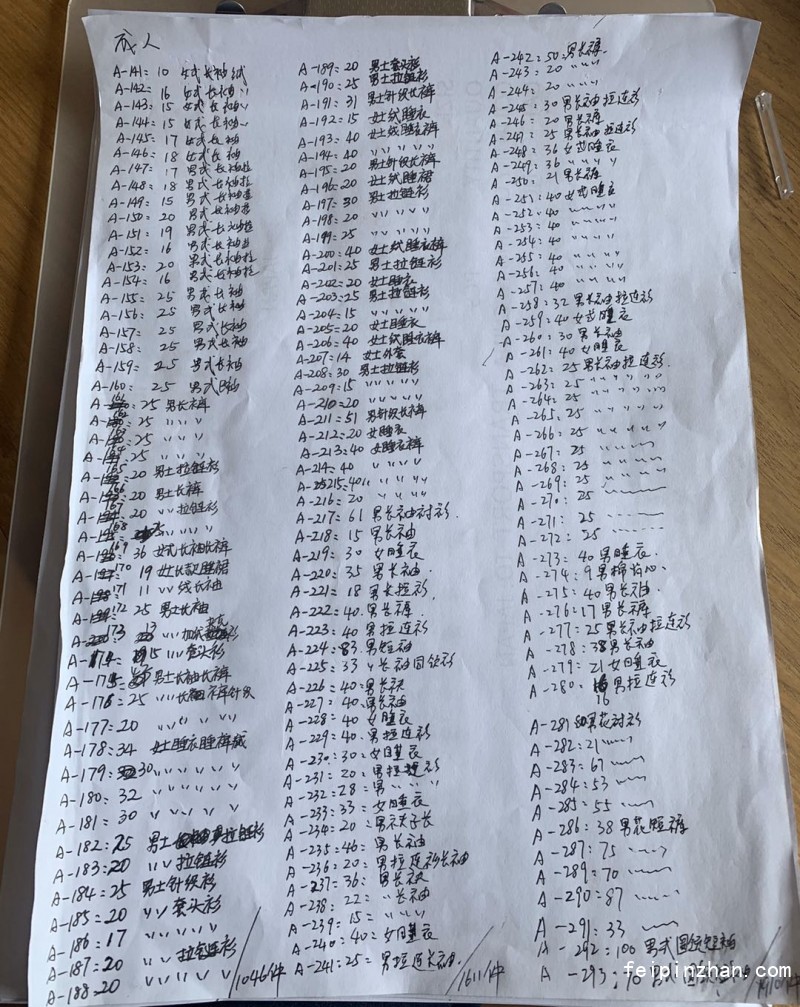 成人
A-141=10 女式长袖绒
A-142= 16 女式长袖 〃
A-143= 15 女式长袖〃
A-144= 15 女式长袖〃
A-145= 17 女式长袖
A-146= 18 女式长袖
A-147= 17 男式长袖拉
A-148= 18 男式长袖拉
A-149= 15 男式长袖
A-150= 20 男式长袖
A-151= 19 男式长袖拉
A-152= 16 男式长袖
A-153= 20 男式长袖拉
A-154= 16 男式长袖拉
A-155= 25 男式长袖
A-156= 25 男式长袖
A-157= 25 男式长袖
A-158= 25 男式长袖
A-159= 25 男式长袖
A-160= 25 男式
A-161=25 男长裤
A-162=25 〃 〃 〃
A-163=25 〃 〃 〃
A-164=25 〃 〃 〃
A-165=20 男士拉链衫
A-166=20 男士长裤
A-167=20 〃 拉链衫
A-168= 25 〃 〃 〃
A-169= 36 女式长袖长裤
A-170 19 女士长款睡裙
A-171 11 〃 线长袖
A-172 25 男士长袖
A-173 13 〃
A-174 15 〃 套头衫
A-175 男士长袖长裤
A-176=25 〃 长裤针织
A-177=20 〃 〃 〃 〃
A-178=34 女士睡衣睡裤绒
A-179=30 〃 〃 〃 〃 〃
A-180= 32 〃 〃 〃 〃 〃
A-181= 30 〃 〃 〃 〃
A-182=25 男士拉链衫
A-183=20 〃 拉链衫
A-184=25 男士针织衫
A-185=20 〃 套头衫
A-186=17 〃 〃 〃 〃
A-187=20 〃 拉链衫
A-188=20 〃 〃 〃 〃 /1046件
A-189=20 男士套头衫
A-190=25 男士拉链衫
A-191=31 男士针织长裤
A-192=15 女士绒睡衣
A-193=40 女士绒睡衣裤
A-194=40 〃 〃 〃 〃 〃
A-195=20 男士针织长裤
A-196=20 女士绒睡裙
A-197=30 男士拉链衫
A-198=20 〃 〃 〃 〃
A-199=25 〃 〃 〃 〃
A-200=40 女士绒睡衣裤
A-201=25 男士拉链衫
A-202=20 女士睡衣
A-203=25 男士拉链衫
A-204=15 〃 〃 〃 〃
A-205=20 女士睡衣
A-206=40 女士绒睡衣裤
A-207=14 女士外套
A-208=30 男士拉链衫
A-209=15 〃 〃 〃 〃
A-210=20 〃 〃 〃 〃
A-211=51 男针织长裤
A-212=20 女睡衣
A-213=40 女睡衣裤
A-214=40 〃 〃 〃 〃
A-215=40 〃 〃 〃 〃
A-216=20 〃 〃 〃 〃
A-217=61 男长袖衬衫.
A-218=15 男长袖
A-219= 30 女睡衣
A-220= 35 男长袖.
A-221= 18 男长拉衫
A-222= 40 男长裤.
A-223= 40 男拉连衫
A-224= 83 男短袖
A-225= 33 〃长袖同款衫
A-226=40 男长袄
A-227=40 男长袖
A-228=40 女睡衣
A-229=40 男拉连衫
A-230=30 女睡衣
A-231=20 男拉连衫
A-232=28 男〃 〃 〃
A-233=33 女睡衣
A-234=20
A-235=46 男长袖
A-236=20 男拉连衫长袖
A-237=36 男长袄
A-238= 22 〃长袖
A-239= 15 〃 〃 〃
A-240=40 女睡衣
A-241=25 男拉连长袖. /1611件
A-242=50 男长裤.
A-243=20 〃 〃 〃
A-244=20 〃 〃 〃
A-245=30 男长袖拉连衫
A-246=20 男长裤
A-247=25 男长袖拉连衫
A-248=36 女式睡衣
A-249=36 〃 〃 〃 〃
A-250=21 男长裤
A-251=40 女式睡衣
A-252=40 〃 〃 〃 〃
A-253=40 〃 〃 〃 〃
A-254=40 〃 〃 〃 〃
A-255=40 〃 〃 〃 〃
A-256=40 〃 〃 〃 〃
A-257=40 〃 〃 〃 〃
A-258=32 男长袖拉连衫
A-259=40 女式睡衣
A-260=30 男长袖
A-261=40 女睡衣
A-262=25 男长袖拉连衫.
A-263=25 〃 〃 〃 〃 〃
A-264=25 〃 〃 〃 〃 〃
A-265=25 〃 〃 〃 〃 〃
A-266=25 〃 〃 〃 〃 〃
A-267=25 〃 〃 〃 〃
A-268=25 〃 〃 〃 〃
A-269=25 〃 〃 〃 〃
A-270=25
A-271= 25
A-272= 25
A-273= 40 男睡衣.
A-274= 9 男棉背心.
A-275= 40 男长袖.
A-276=17 男长裤
A-277=25 男长袖拉连衫
A-278= 38 男长袖
A-279= 21 女睡衣
A-280= 16 男拉连衫
16
A-281 50 男花衬衫
A-282=21
A-283=67
A-284=53
A-285=55
A-286=38 男花短裤
A-287=75
A-289=70
A-290=87
A-291=33
A-292=100 男式圆领短袖
A-293=70 男式
feipinzhan.com